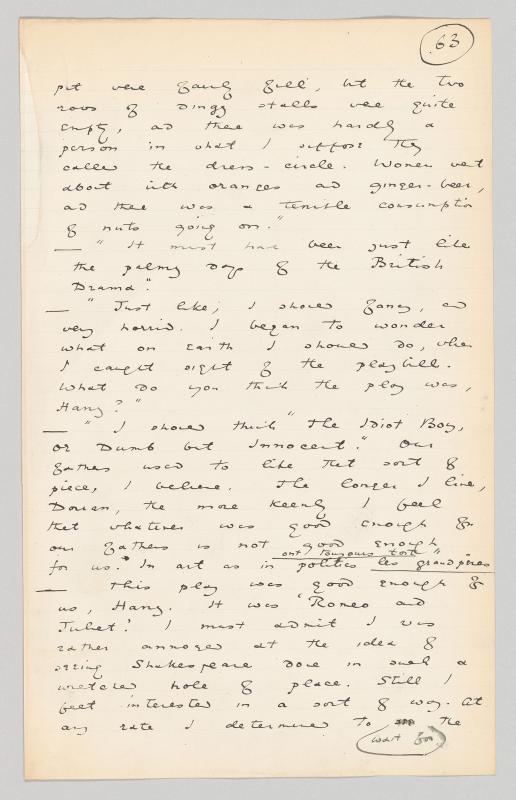 63
pit were fairly full, but the two
rows of dingy stalls were quite
empty, and there was hardly a
person in what I suppose they
called the dress-circle. Women went
about with oranges and ginger-beer,
and there was a terrible consumption
of nuts going on."
— "It must have been just like
the palmy days of the British
Drama."
— "Just like, I should fancy, and
very horrid. I began to wonder
what on earth I should do, when
I caught sight of the playbill.
What do you think the play was,
Harry?"
— "I should think "The Idiot Boy,
or Dumb but Innocent." Our
fathers used to like that sort of
piece, I believe. The longer I live,
Dorian, the more keenly I feel
that whatever was good enough for
our fathers is not good enough
for us. In art as in politics les grandpères
ont toujours tort"
— This play was good enough for
us, Harry. It was "Romeo and
Juliet." I must admit I was
rather annoyed at the idea of
seeing Shakespeare done in such a
wretched hole of a place. Still I
felt interested in a sort of way. At
any rate I determined to the
wait for